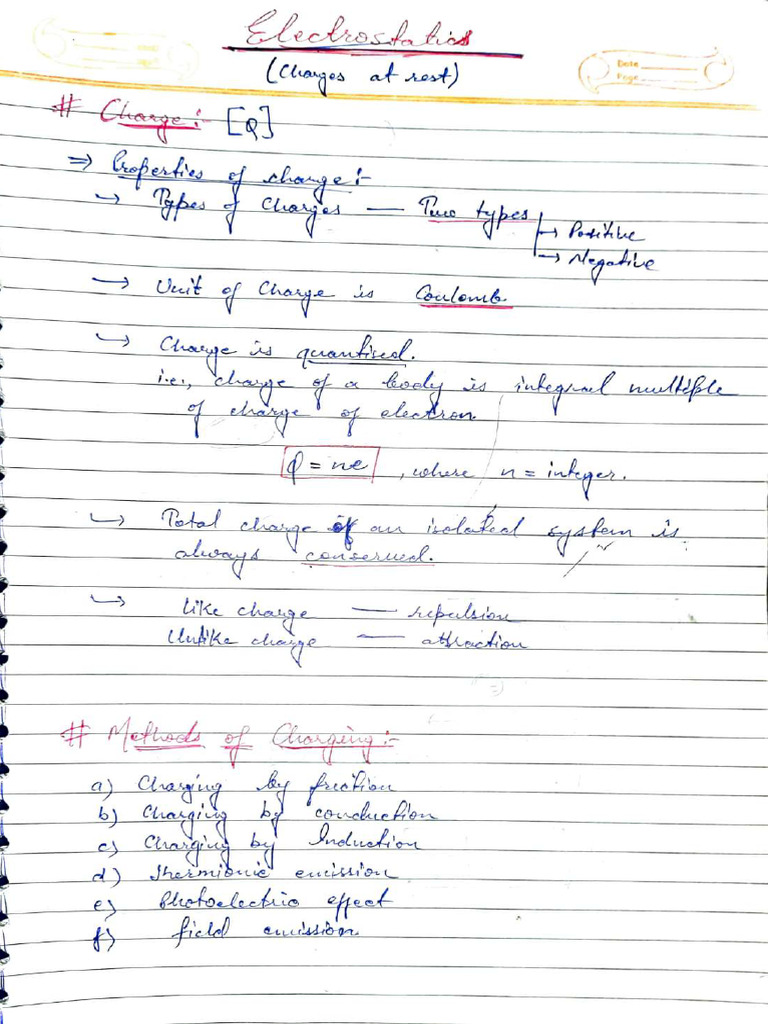 Electrostatics
(Charges at rest)
Date
Page
# Charge :- [Q]
⇒ Properties of charge :-
→ Types of Charges — Two types
→ Positive
→ Negative
→ Unit of Charge is Coulomb
→ Charge is quantised.
i.e., charge of a body is integral multiple
of charge of electron
Q = ne , where n = integer.
→ Total charge of an isolated system is
always conserved.
→ Like charge — repulsion
Unlike charge — attraction
# Methods of Charging :-
a) Charging by friction
b) Charging by conduction
c) Charging by Induction
d) Thermionic emission
e) Photoelectric effect
f) field emission